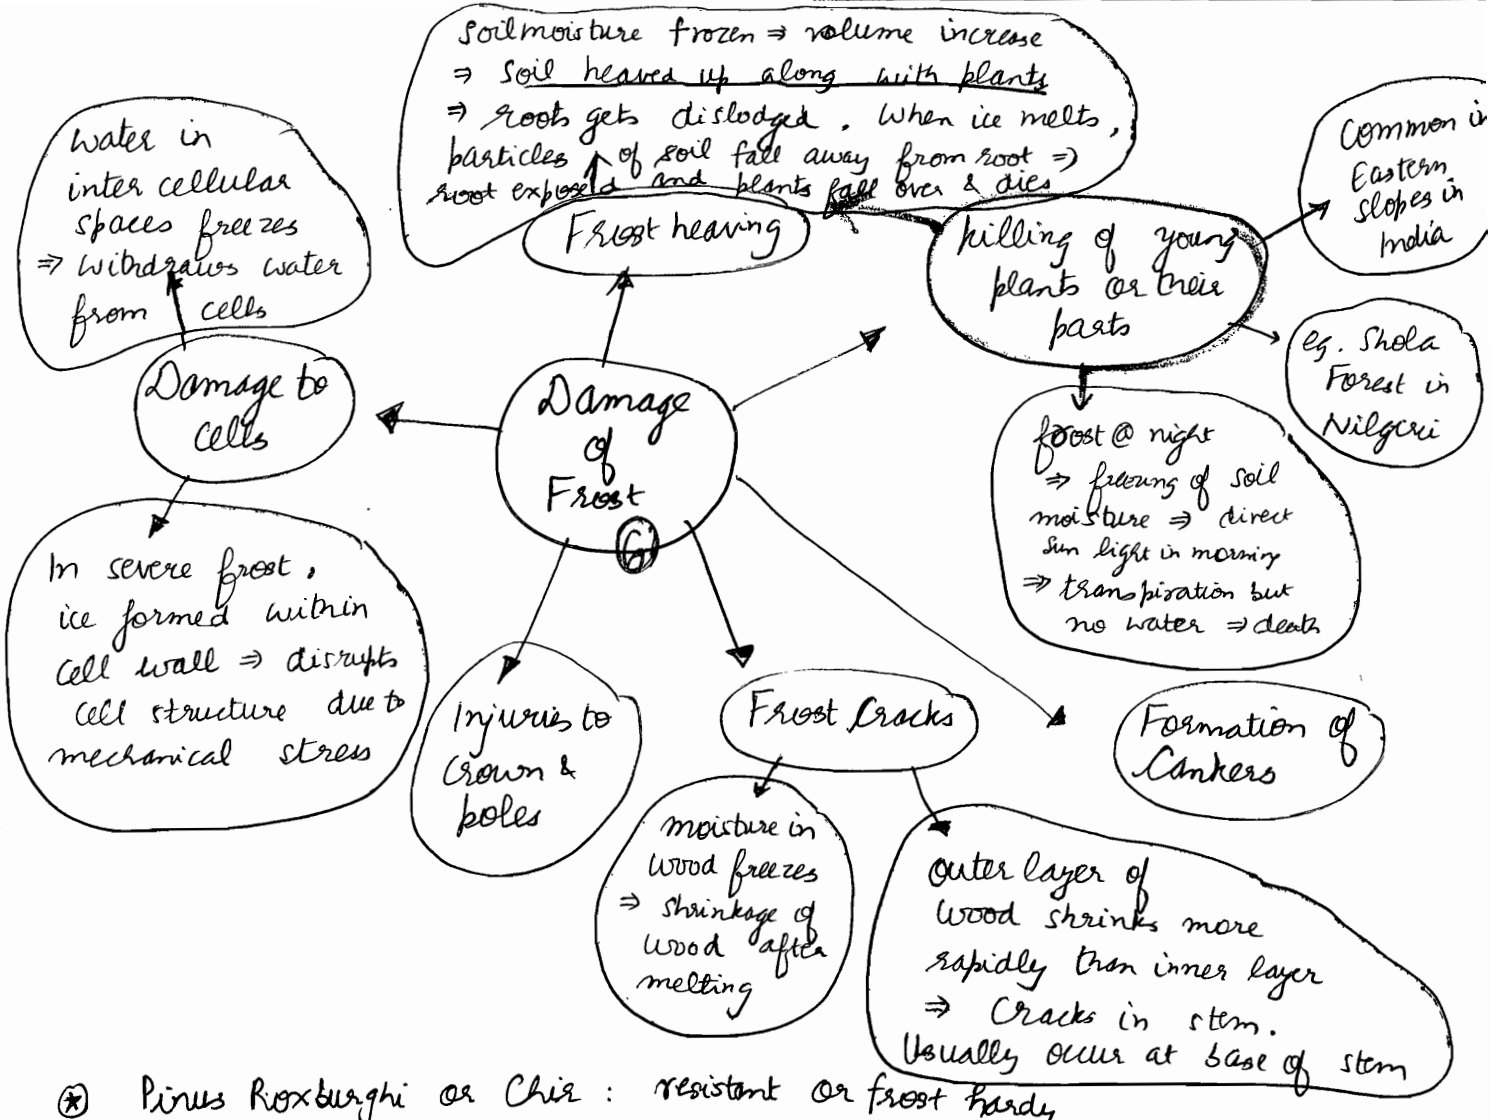 Soilmoisture frozen ⇒ volume increase
⇒ soil heaved up along with plants
⇒ roots gets dislodged. When ice melts,
particles of soil fall away from root ⇒
root exposed and plants fall over & dies
Frost heaving
Water in
inter cellular
spaces freezes
⇒ withdraws water
from cells
Damage to
cells
In severe frost,
ice formed within
cell wall ⇒ disrupts
cell structure due to
mechanical stress
Damage
of
Frost
6
killing of young
plants or their
parts
Common in
Eastern
slopes in
India
eg. Shola
Forest in
Nilgiri
frost @ night
⇒ freezing of soil
moisture ⇒ direct
sun light in morning
⇒ transpiration but
no water ⇒ death
Injuries to
Crown &
poles
Frost Cracks
moisture in
wood freezes
⇒ shrinkage of
wood after
melting
outer layer of
wood shrinks more
rapidly than inner layer
⇒ Cracks in stem.
Usually occur at base of stem
Formation of
Cankers
⊛ Pinus Roxburghi or Chir : resistant or frost hardy